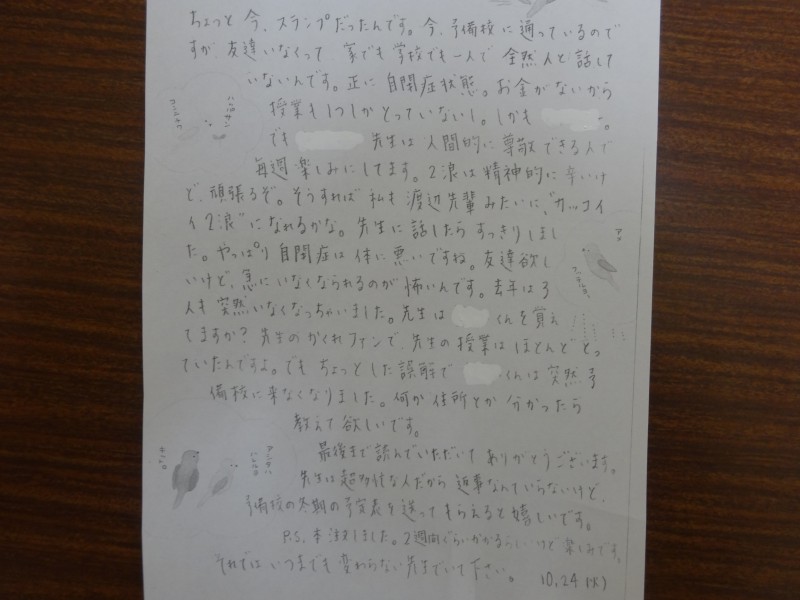 ちょっと今、スランプだったんです。今、予備校に通っているので
すが友達いなくって 家でも学校でも一人で 全然人と話して
いないんです。正に自閉症状態。お金がないから
授業も1つしかとっていないし。しかも
でも 先生は人間的に尊敬できる人で
毎週楽しみにしてます。2浪は精神的に辛いけ
ど、頑張るぞ。そうすれば私も渡辺先輩みたいに、"カッコイ
イ2浪"になれるかな。先生に話したらすっきりしまし
た。やっぱり自閉症は体に悪いですね。友達欲し
いけど、急にいなくなられるのが怖いんです。去年は3
人も突然いなくなっちゃいました。先生は くんを覚え
てますか?先生のかくれファンで、先生の授業はほとんどとっ
ていたんですよ。でもちょっとした誤解で くんは突然予
備校に来なくなりました。何か住所とか分かったら
教えて欲しいです。
最後まで読んでいただいてありがとうございます。
先生は超多忙な人だから返事なんていらないけど、
予備校の冬期の予定表を送ってもらえると嬉しいです。
P.S. 本注文しました。2週間ぐらいかかるらしいけど楽しみです。
それではいつまでも変わらない先生でいて下さい。 10.24 (水)